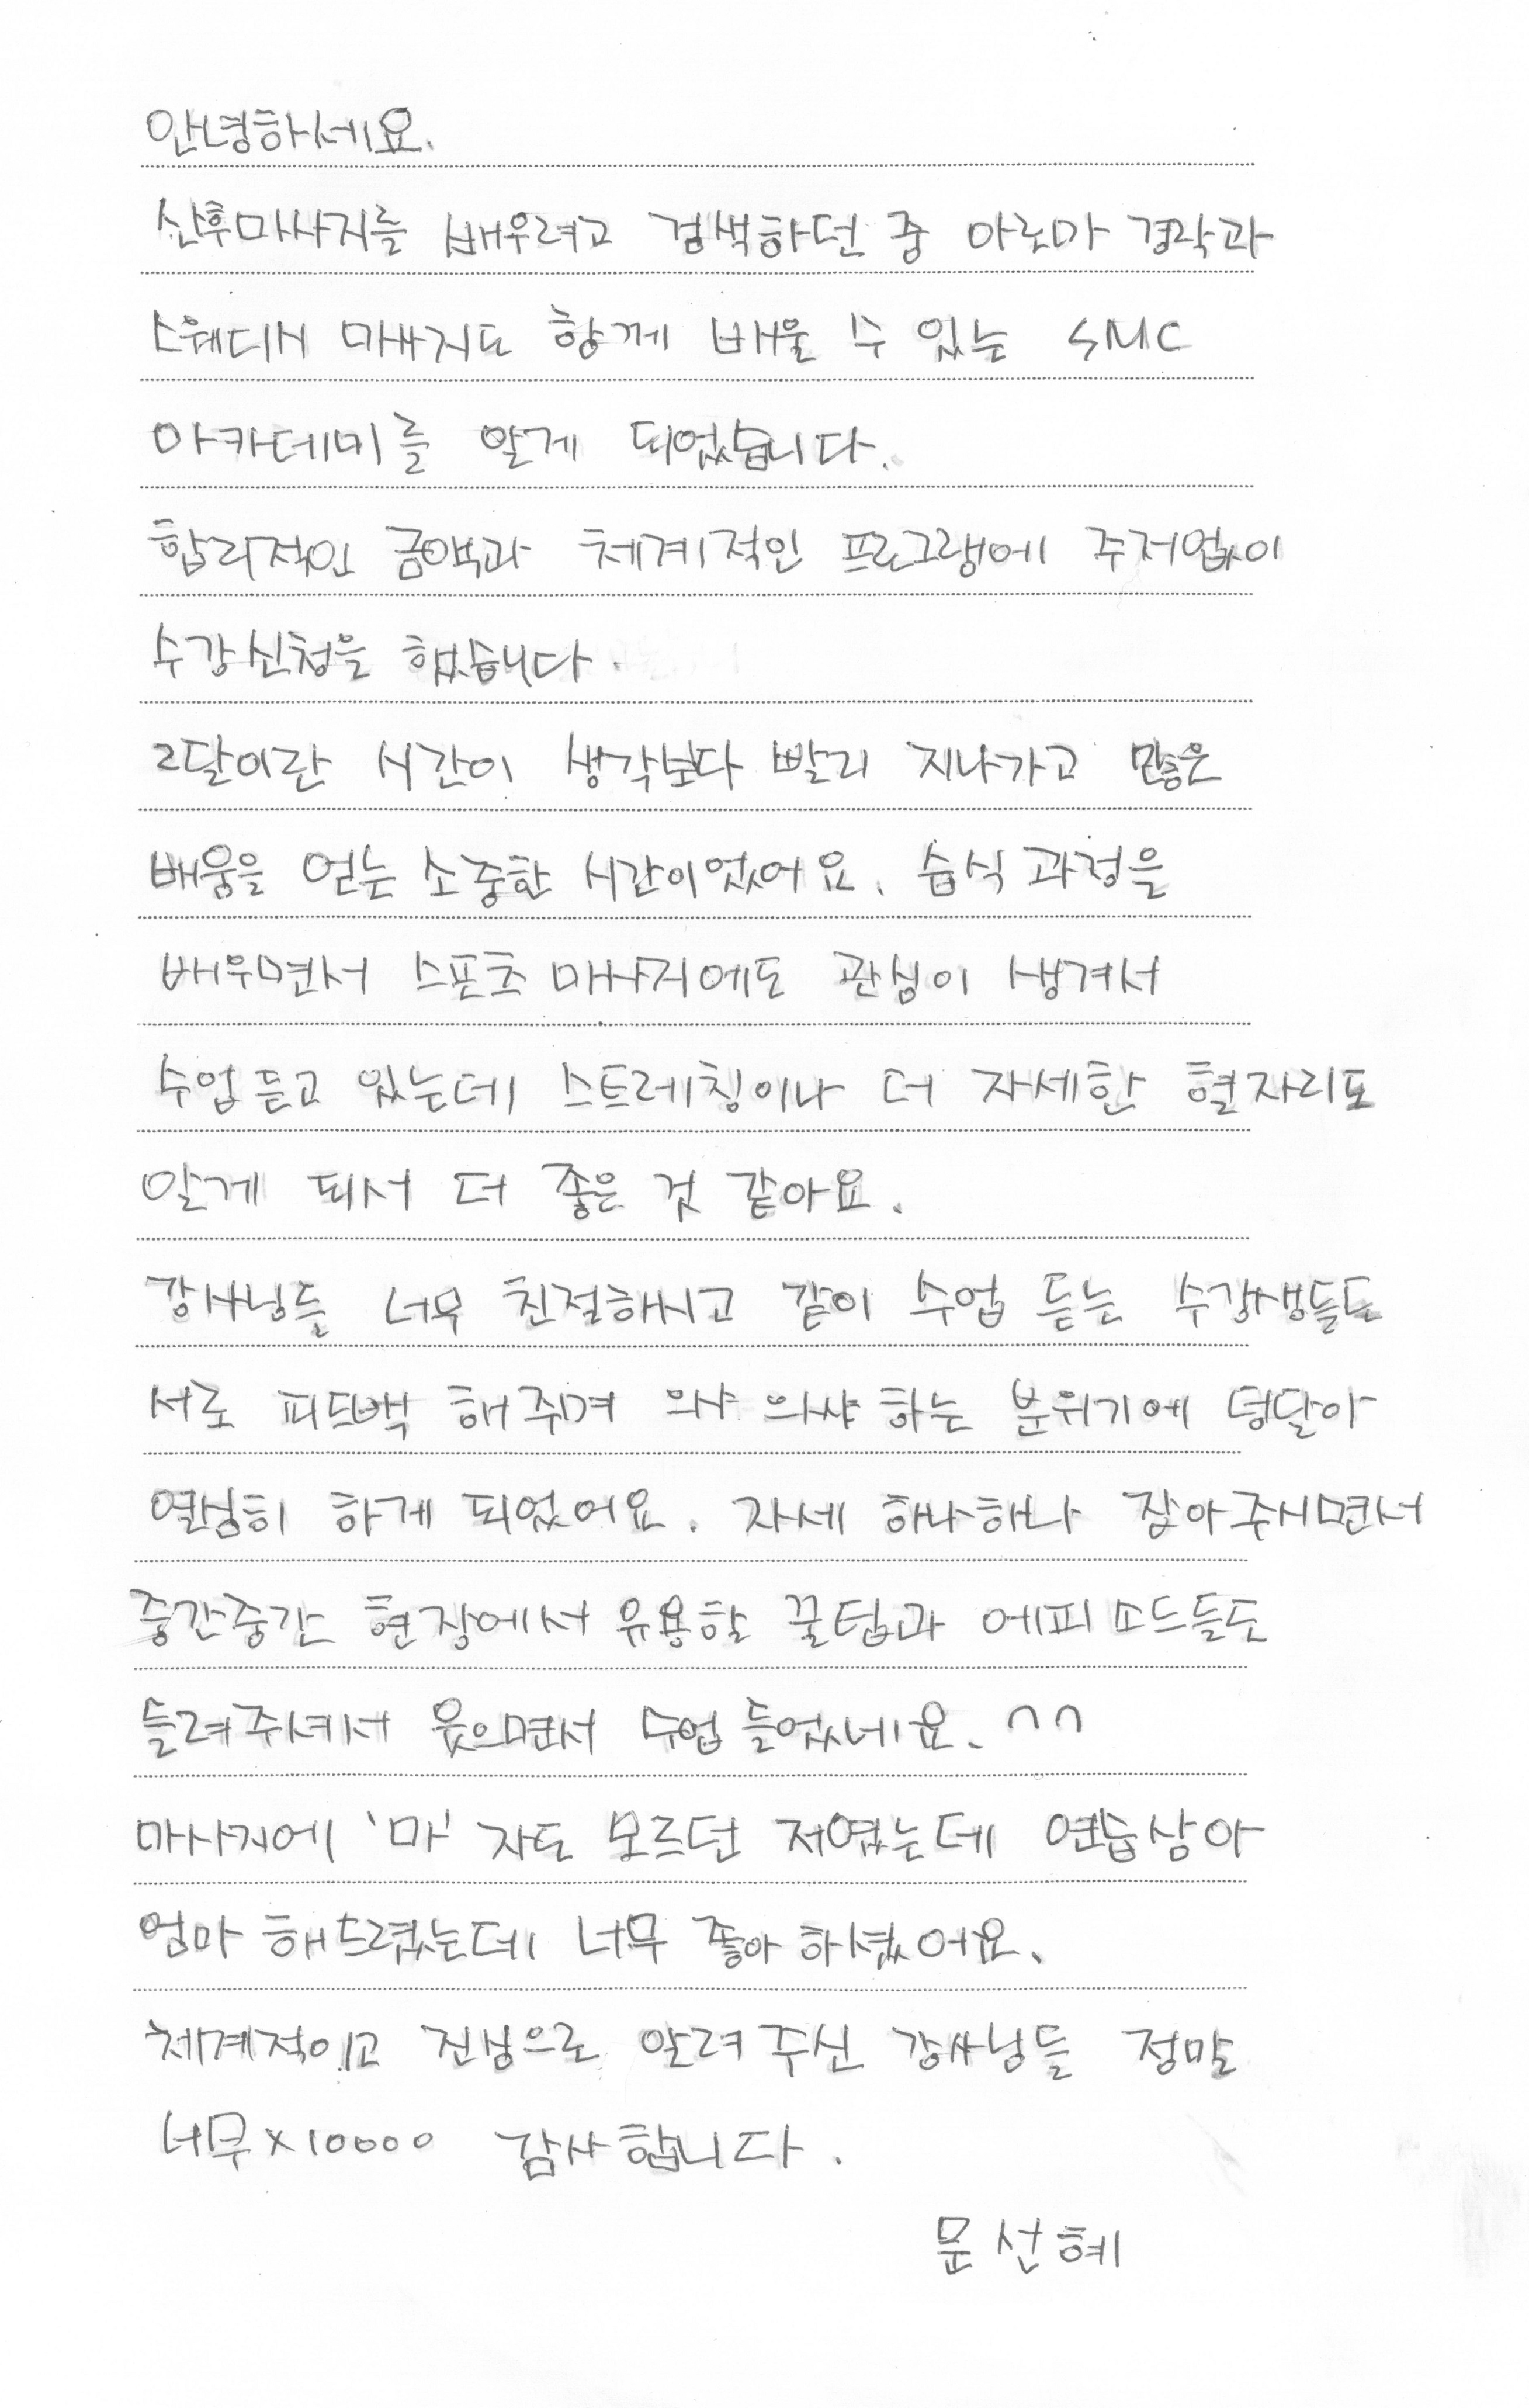 안녕하세요.
산후마사지를 배우려고 검색하던 중 아로마 경락과
스웨디시 마사지도 함께 배울 수 있는 SMC
아카데미를 알게 되었습니다.
합리적인 금액과 체계적인 프로그램에 주저없이
수강신청을 했습니다.
2달이란 시간이 생각보다 빨리 지나가고 많은
배움을 얻는 소중한 시간이었어요. 습식 과정을
배우면서 스포츠 마사지에도 관심이 생겨서
수업 듣고 있는데 스트레칭이나 더 자세한 혈자리도
알게 되서 더 좋은 것 같아요.
강사님들 너무 친절하시고 같이 수업 듣는 수강생들도
서로 피드백 해주며 으샤 으샤 하는 분위기에 덩달아
열심히 하게 되었어요. 자세 하나하나 잡아주시면서
중간중간 현장에서 유용할 꿀팁과 에피소드들도
들려주셔서 웃으면서 수업 들었네요. ^^
마사지에 '마' 자도 모르던 저였는데 연습삼아
엄마 해드렸는데 너무 좋아하셨어요.
체계적이고 진심으로 알려주신 강사님들 정말
너무×10000 감사합니다.
문선혜